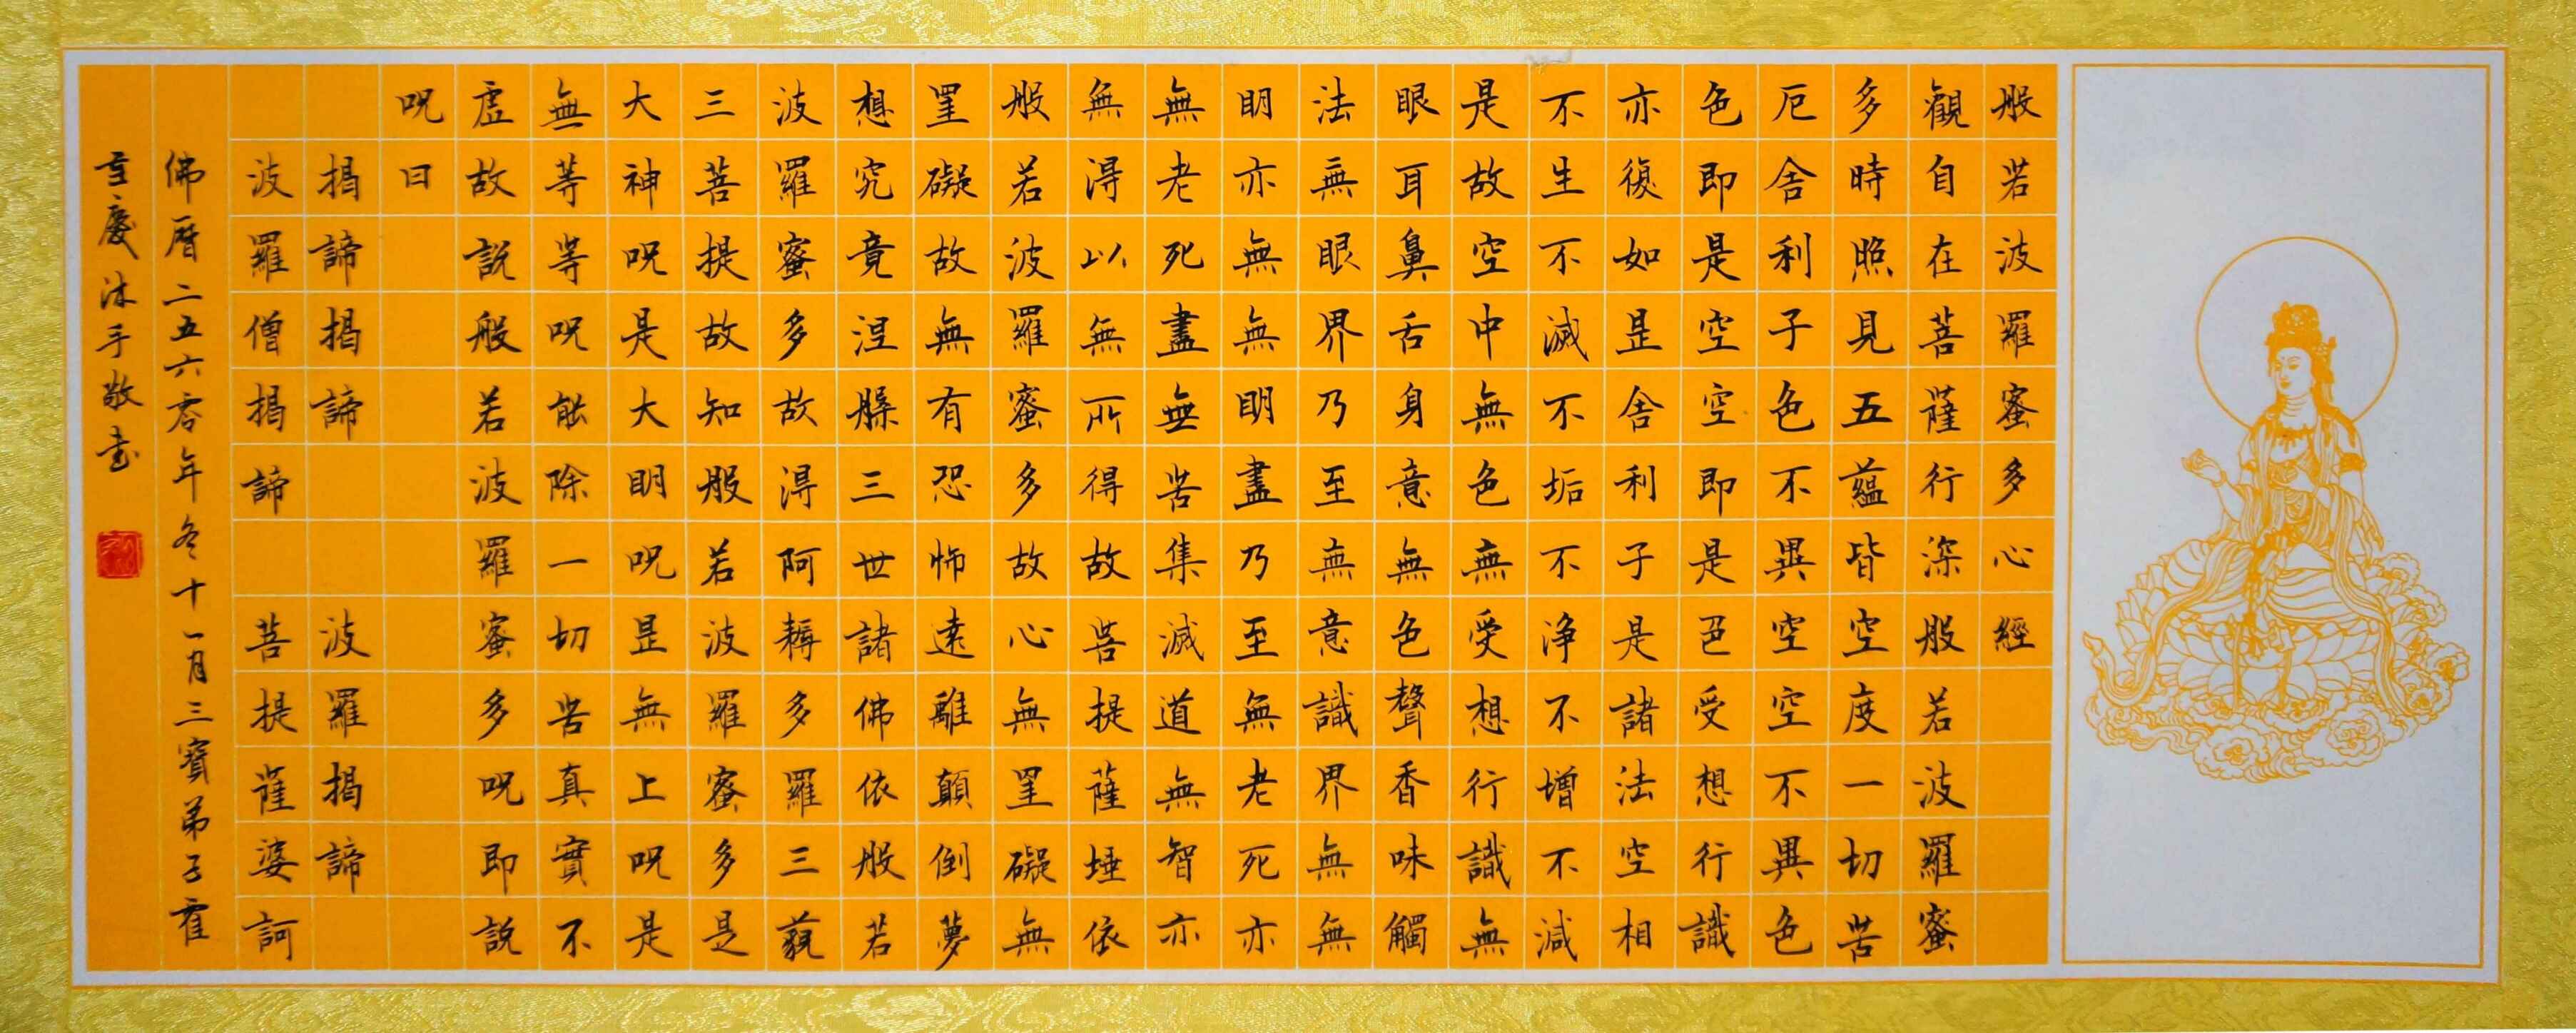 般若波羅蜜多心經
觀自在菩薩行深般若波羅蜜
多時照見五蘊皆空度一切苦
厄舍利子色不異空空不異色
色即是空空即是色受想行識
亦復如是舍利子是諸法空相
不生不滅不垢不净不增不減
是故空中無色無受想行識無
眼耳鼻舌身意無色聲香味觸
法無眼界乃至無意識界無無
明亦無無明盡乃至無老死亦
無老死盡無苦集滅道無智亦
無得以無所得故菩提薩埵依
般若波羅蜜多故心無罣礙無
罣礙故無有恐怖遠離顛倒夢
想究竟涅槃三世諸佛依般若
波羅蜜多故得阿耨多羅三藐
三菩提故知般若波羅蜜多是
大神呪是大明呪是無上呪是
無等等呪能除一切苦真實不
虛故説般若波羅蜜多呪即説
呪曰
揭諦揭諦 波羅揭諦
波羅僧揭諦 菩提薩婆訶
佛曆二五六零年冬十一月三寳弟子霍
慶沐手敬书